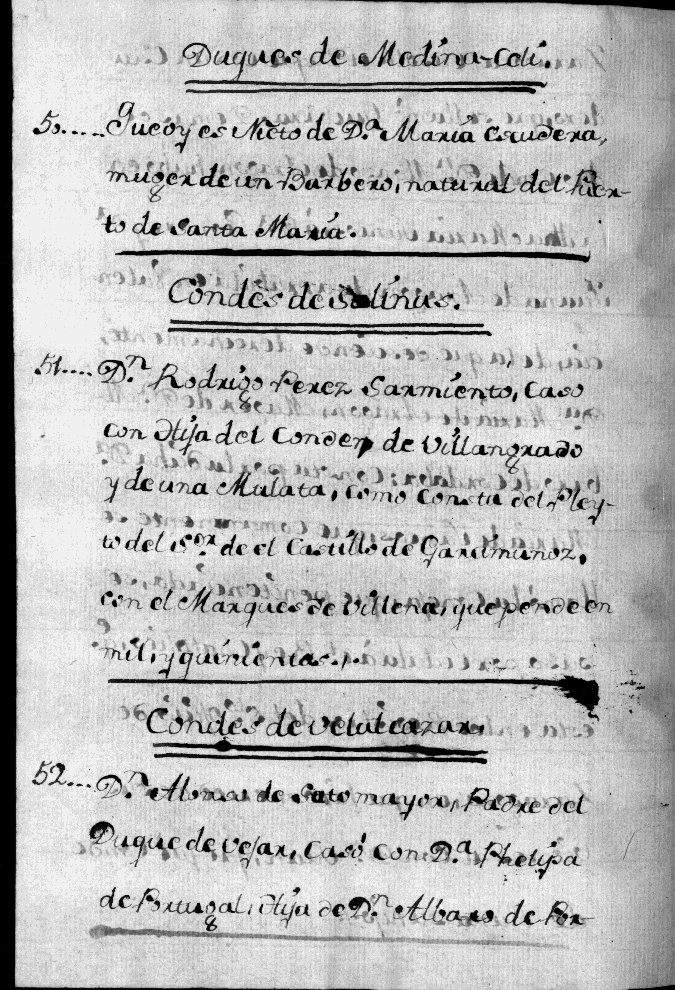 Duques de Medina-Celi.
50..... que oy es Nieto de D.ª Maria escudera,
muger de un Barbero, natural del Puer-
to de Santa Maria.
Condes de Salinas.
51.... D.n Rodrigo Perez Sarmiento, Caso
con Hija del Conde de Villangrado
y de una Mulata, como consta del Pley-
to del S.or de el Castillo de Garcimunoz,
con el Marques de Villena, que pende en
mil, y quinientas.
Condes de Velalcazar.
52... D.n Alonso de Sotomayor, Padre del
Duque de Vejar, Casó con D.ª Phelipa
de Portugal, Hija de D.n Albaro de Por-